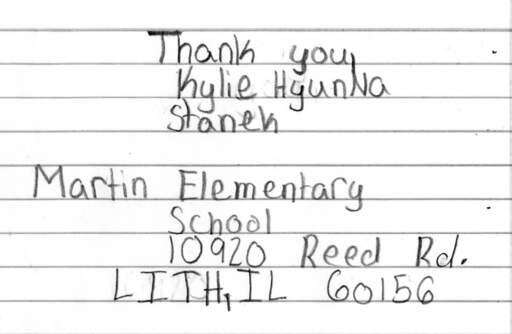 Thank you,
Kylie HyunNa
Stanek
Martin Elementary
School
10920 Reed Rd.
LITH, IL 60156